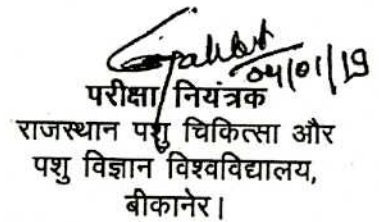 04/01/19
परीक्षा नियंत्रक
राजस्थान पशु चिकित्सा और
पशु विज्ञान विश्वविद्यालय,
बीकानेर।